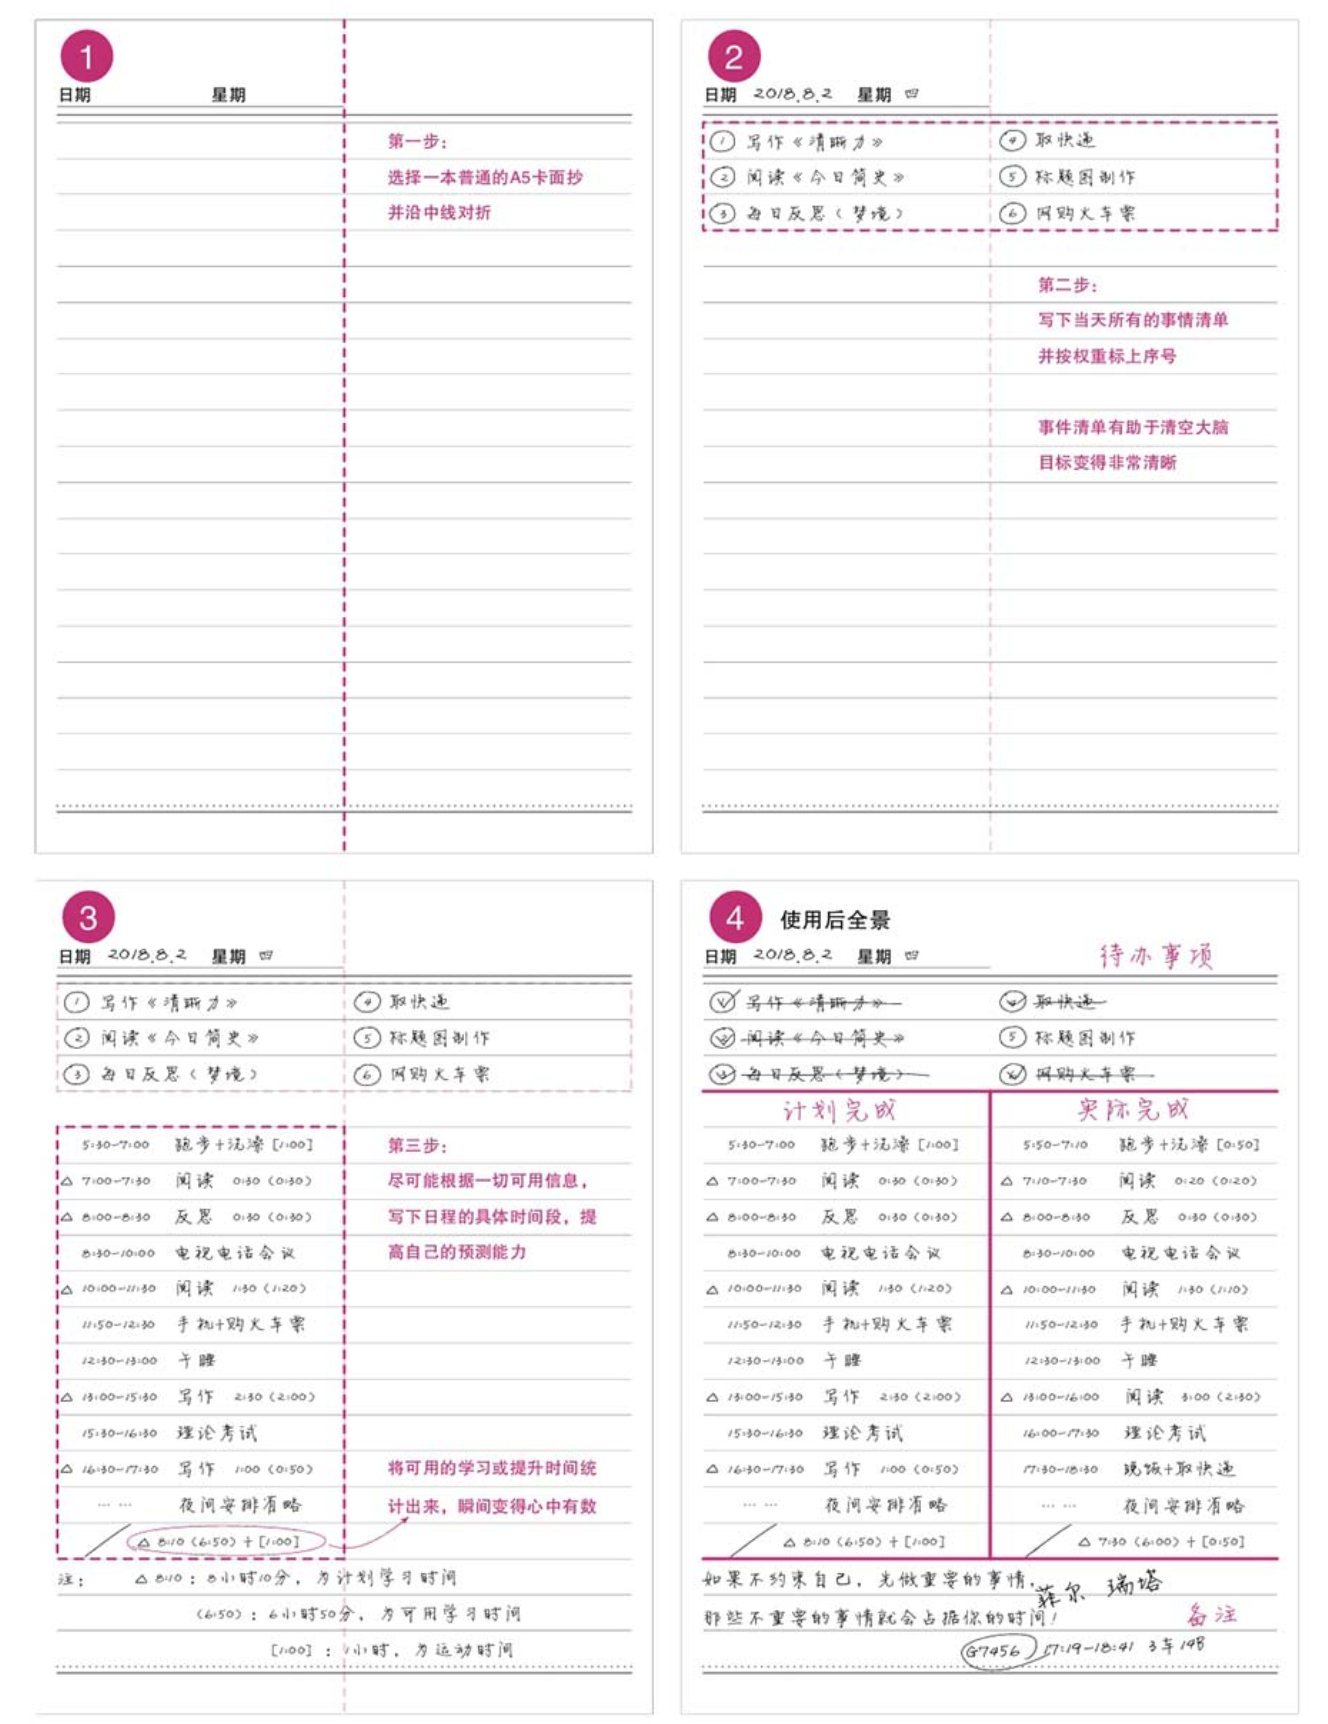 1
日期 星期
第一步：
选择一本普通的A5卡面抄
并沿中线对折
2
日期 2018.8.2 星期 四
① 写作《清晰力》 ④ 取快递
② 阅读《今日简史》 ⑤ 标题图制作
③ 每日反思（梦境） ⑥ 网购火车票
第二步：
写下当天所有的事情清单
并按权重标上序号
事件清单有助于清空大脑
目标变得非常清晰
3
日期 2018.8.2 星期 四
① 写作《清晰力》 ④ 取快递
② 阅读《今日简史》 ⑤ 标题图制作
③ 每日反思（梦境） ⑥ 网购火车票
5:30-7:00 跑步+洗澡 [1:00]
△ 7:00-7:30 阅读 0:30 (0:30)
△ 8:00-8:30 反思 0:30 (0:30)
8:30-10:00 电视电话会议
△ 10:00-11:30 阅读 1:30 (1:20)
11:50-12:30 手机+购火车票
12:30-13:00 午睡
△ 13:00-15:30 写作 2:30 (2:00)
15:30-16:30 理论考试
△ 16:30-17:30 写作 1:00 (0:50)
…… 夜间安排省略
△ 8:10 (6:50) + [1:00]
第三步：
尽可能根据一切可用信息，
写下日程的具体时间段，提
高自己的预测能力
将可用的学习或提升时间统
计出来，瞬间变得心中有数
注： △ 8:10：8小时10分，为计划学习时间
(6:50)：6小时50分，为可用学习时间
[1:00]：1小时，为运动时间
4 使用后全景
日期 2018.8.2 星期 四 待办事项
① 写作《清晰力》 ④ 取快递
② 阅读《今日简史》 ⑤ 标题图制作
③ 每日反思（梦境） ⑥ 网购火车票
计划完成
5:30-7:00 跑步+洗澡 [1:00]
△ 7:00-7:30 阅读 0:30 (0:30)
△ 8:00-8:30 反思 0:30 (0:30)
8:30-10:00 电视电话会议
△ 10:00-11:30 阅读 1:30 (1:20)
11:50-12:30 手机+购火车票
12:30-13:00 午睡
△ 13:00-15:30 写作 2:30 (2:00)
15:30-16:30 理论考试
△ 16:30-17:30 写作 1:00 (0:50)
…… 夜间安排省略
△ 8:10 (6:50) + [1:00]
实际完成
5:50-7:10 跑步+洗澡 [0:50]
△ 7:10-7:30 阅读 0:20 (0:20)
△ 8:00-8:30 反思 0:30 (0:30)
8:30-10:00 电视电话会议
△ 10:00-11:30 阅读 1:30 (1:10)
11:50-12:30 手机+购火车票
12:30-13:00 午睡
△ 13:00-16:00 阅读 3:00 (2:30)
16:00-17:30 理论考试
17:30-18:30 晚饭+取快递
…… 夜间安排省略
△ 7:30 (6:00) + [0:50]
如果不约束自己，先做重要的事情，
那些不重要的事情就会占据你的时间！
菲尔 瑞塔
备注
G7456 17:19-18:41 3车14B